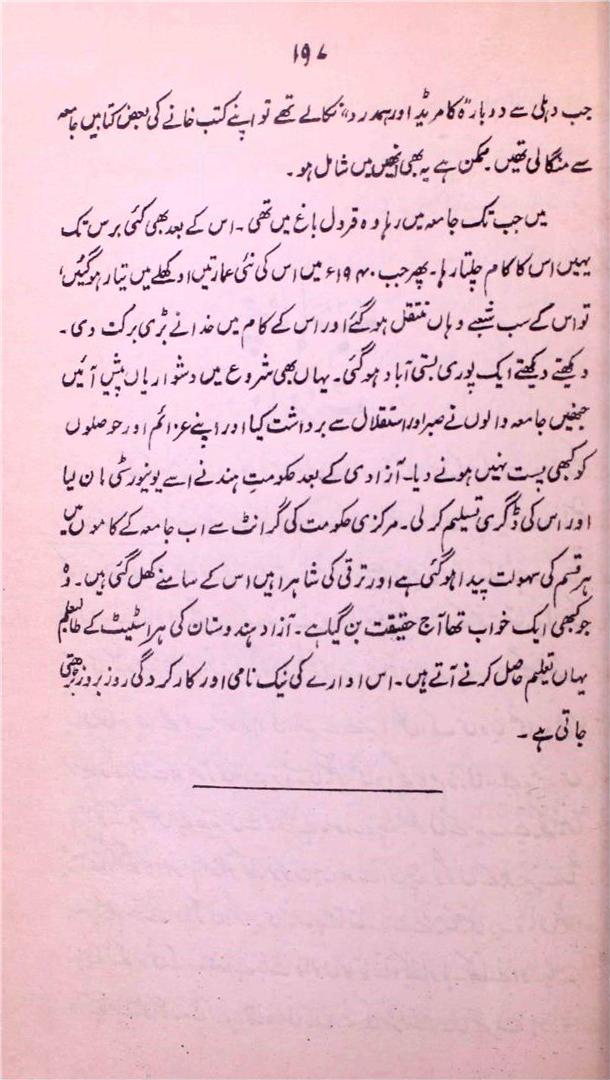 ۱۹۷
جب دہلی سے دوبارہ "کامریڈ اور ہمدرد" نکالے تھے تو اپنے کتب خانے کی بعض کتابیں جامعہ
سے منگالی تھیں۔ ممکن ہے یہ بھی انھیں میں شامل ہو۔
میں جب تک جامعہ میں رہا وہ قرول باغ میں تھی۔ اس کے بعد بھی کئی برس تک
یہیں اس کا کام چلتا رہا۔ پھر جب ۱۹۴۰ء میں اس کی نئی عمارتیں اوکھلے میں تیار ہوگئیں،
تو اس کے سب شعبے وہاں منتقل ہوگئے اور اس کے کام میں خدا نے بڑی برکت دی۔
دیکھتے دیکھتے ایک پوری بستی آباد ہوگئی۔ یہاں بھی شروع میں دشواریاں پیش آئیں
جنھیں جامعہ والوں نے صبر اور استقلال سے برداشت کیا اور اپنے عزائم اور حوصلوں
کو کبھی پست نہیں ہونے دیا۔ آزادی کے بعد حکومتِ ہند نے اسے یونیورسٹی مان لیا
اور اس کی ڈگری تسلیم کرلی۔ مرکزی حکومت کی گرانٹ سے اب جامعہ کے کاموں میں
ہر قسم کی سہولت پیدا ہوگئی ہے اور ترقی کی شاہراہیں اس کے سامنے کھل گئی ہیں۔ وہ
جو کبھی ایک خواب تھا آج حقیقت بن گیا ہے۔ آزاد ہندوستان کی ہر اسٹیٹ کے طالبعلم
یہاں تعلیم حاصل کرنے آتے ہیں۔ اس ادارے کی نیک نامی اور کارکردگی روز بروز بڑھتی
جاتی ہے۔